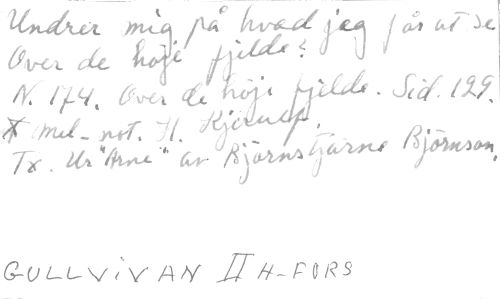 Undrer mig på hvad jeg får at se
Over de höje fjelde?
N. 174. Over de höje fjelde. Sid. 129.
X Mel. not. H. Kjerulf.
Tx. Ur "Arne" av Björnstjärne Björnson.
GULLVIVAN II H-FORS